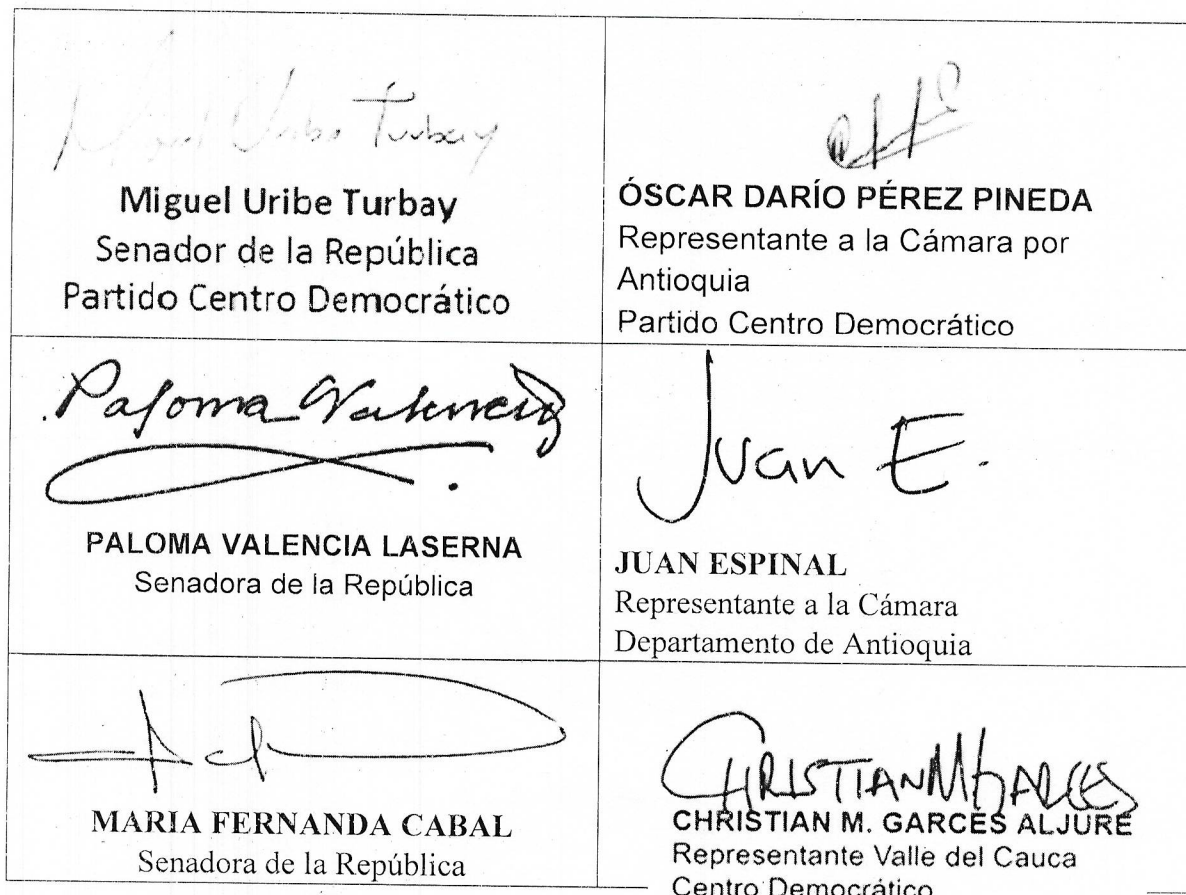 Miguel Uribe Turbay
Miguel Uribe Turbay
Senador de la República
Partido Centro Democrático
ÓSCAR DARÍO PÉREZ PINEDA
Representante a la Cámara por
Antioquia
Partido Centro Democrático
Paloma Valencia
PALOMA VALENCIA LASERNA
Senadora de la República
Juan E.
JUAN ESPINAL
Representante a la Cámara
Departamento de Antioquia
MARIA FERNANDA CABAL
Senadora de la República
CHRISTIAN M GARCES
CHRISTIAN M. GARCÉS ALJURE
Representante Valle del Cauca
Centro Democrático